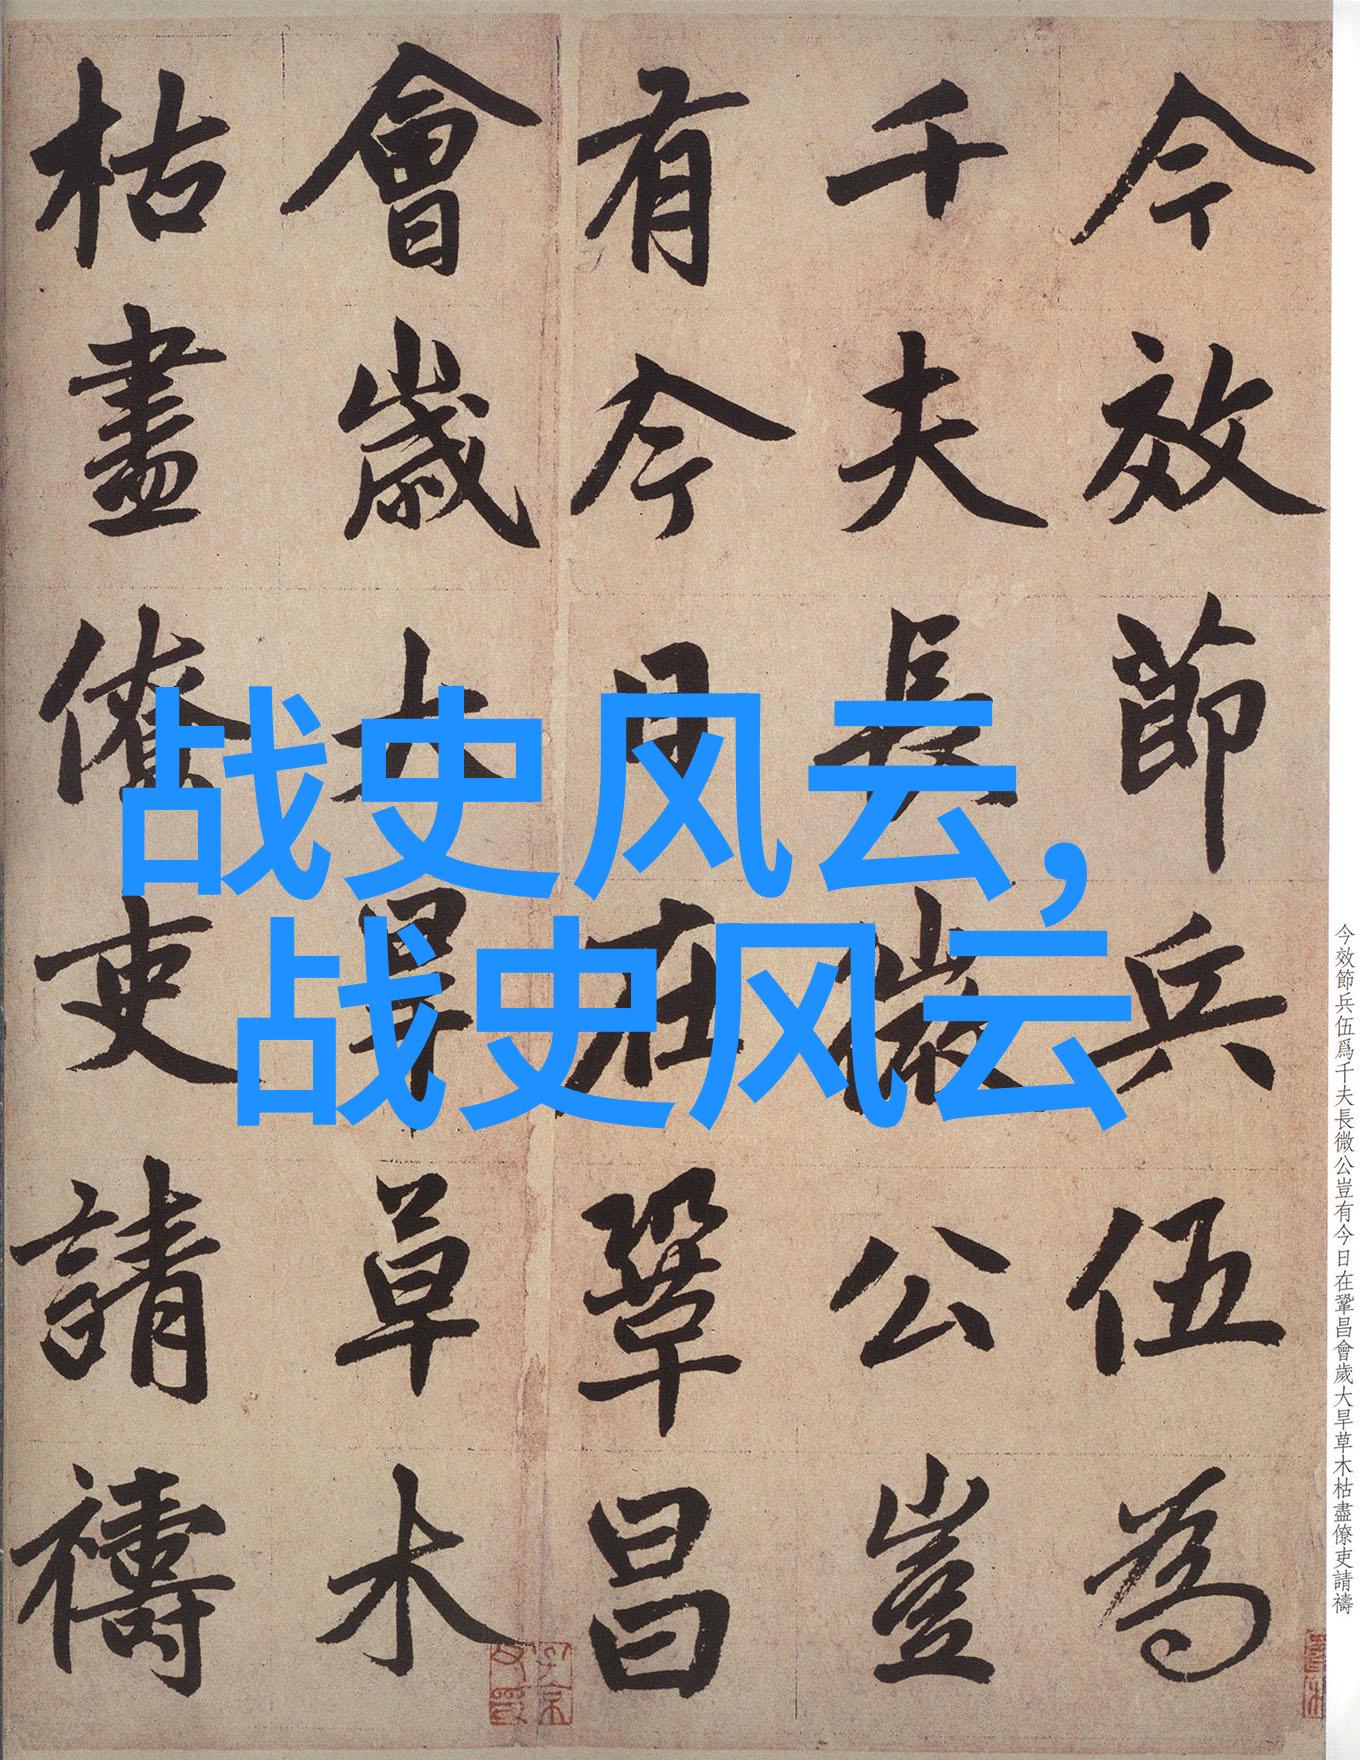 今效節兵伍為
千夫長微公豈
有今日在鞏昌
會歲大旱草木
枯盡僚吏請禱
战史风云，
战史风云
今效節兵伍爲千夫長微公豈有今日在鞏昌會歲大旱草木枯盡僚吏請禱